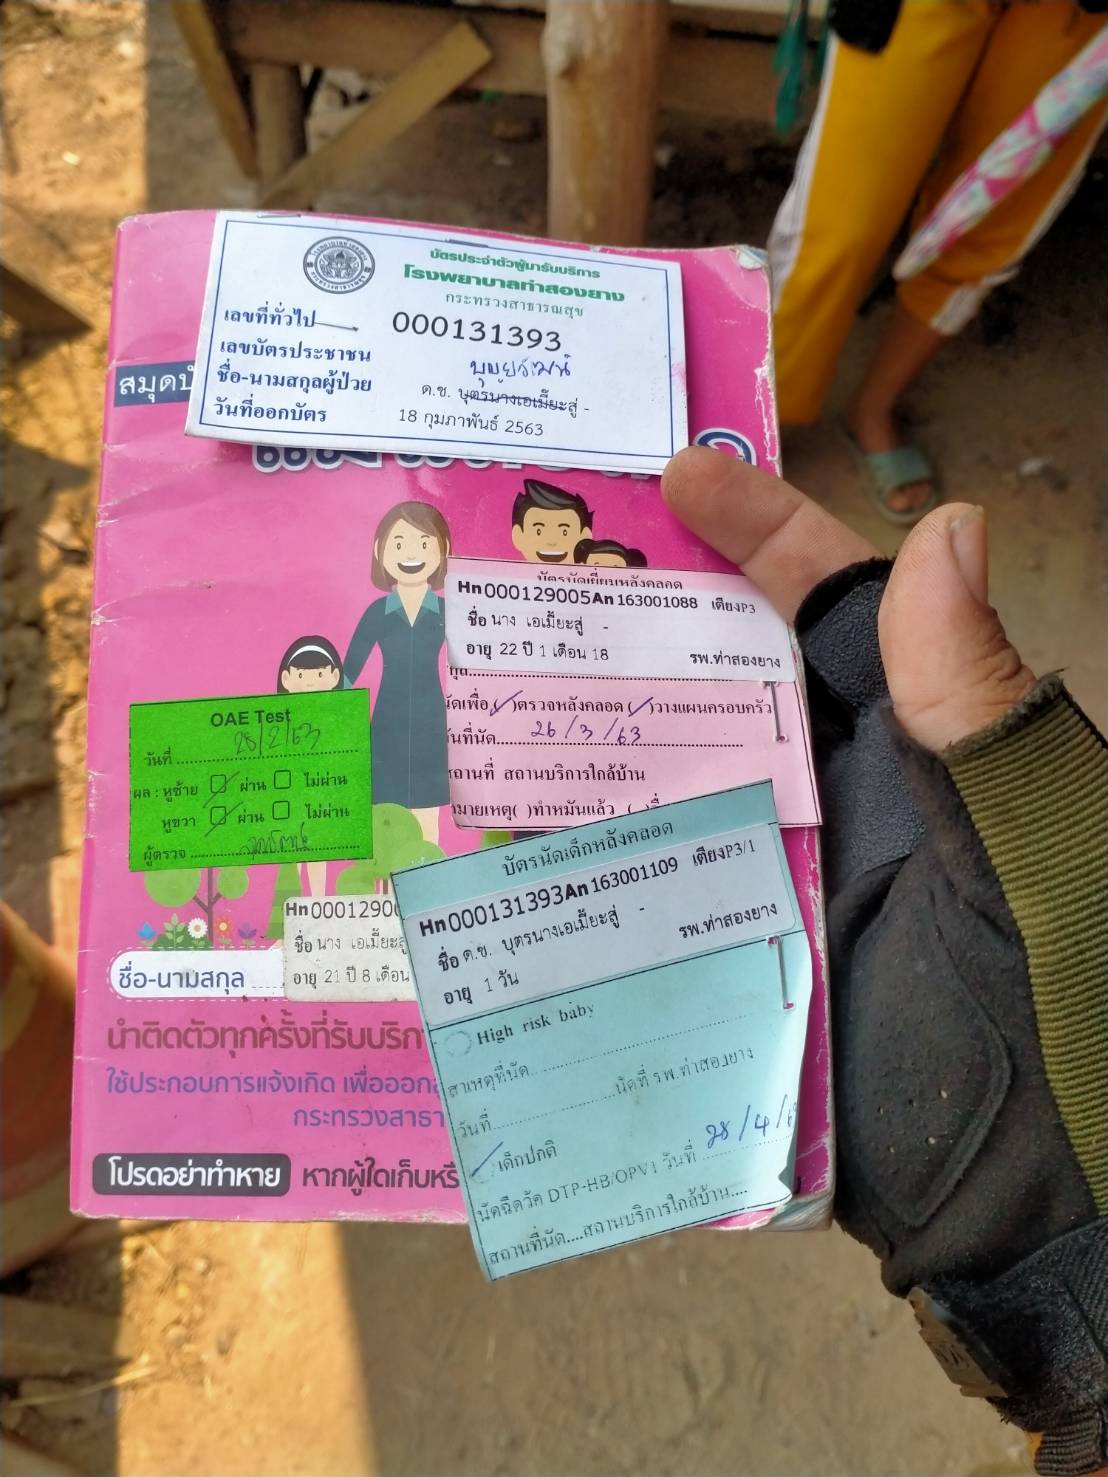 บัตรประจำตัวผู้มารับบริการ
โรงพยาบาลท่าสองยาง
กระทรวงสาธารณสุข
เลขที่ทั่วไป 000131393
เลขบัตรประชาชน
ชื่อ-นามสกุลผู้ป่วย ด.ช. บุตรนางเอเมี๊ยะสู่ -
วันที่ออกบัตร 18 กุมภาพันธ์ 2563
บัตรนัดเยี่ยมหลังคลอด
Hn000129005An163001088 เตียงP3
ชื่อ นาง เอเมี๊ยะสู่ -
อายุ 22 ปี 1 เดือน 18
รพ.ท่าสองยาง
นัดเพื่อ( )ตรวจหลังคลอด( )วางแผนครอบครัว
วันที่นัด 26/3/63
สถานที่ สถานบริการใกล้บ้าน
หมายเหตุ( )ทำหมันแล้ว
OAE Test
วันที่ 28/2/63
ผล : หูซ้าย ผ่าน ไม่ผ่าน
หูขวา ผ่าน ไม่ผ่าน
ผู้ตรวจ
บัตรนัดเด็กหลังคลอด
Hn000131393An163001109 เตียงP3/1
ชื่อ ด.ช. บุตรนางเอเมี๊ยะสู่ -
อายุ 1 วัน
รพ.ท่าสองยาง
High risk baby
สาเหตุที่นัด
วันที่ นัดที่ รพ.ท่าสองยาง
เด็กปกติ
นัดฉีดวัค DTP-HB/OPV1 วันที่ 28/4/6
สถานที่นัด....สถานบริการใกล้บ้าน....
Hn000129
ชื่อ นาง เอเมี๊ยะสู่
อายุ 21 ปี 8 เดือน
ชื่อ-นามสกุล
นำติดตัวทุกครั้งที่รับบริการ
ใช้ประกอบการแจ้งเกิด
กระทรวงสาธา
โปรดอย่าทำหาย หากผู้ใดเก็บ